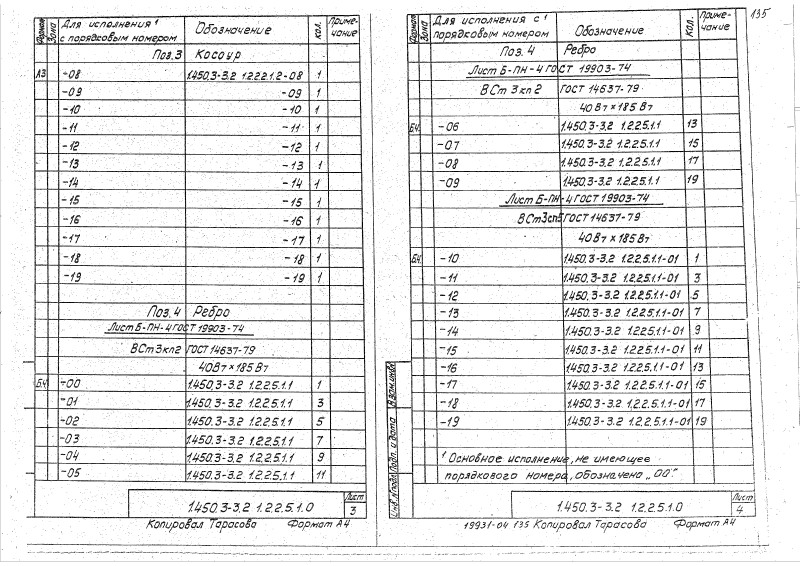 Формат Зона Для исполнения¹ с порядковым номером Обозначение Кол. Примечание
Поз.3 Косоур
А3 -08 1.450.3-3.2 1.2.2.2.1.2-08 1
-09 -09 1
-10 -10 1
-11 -11 1
-12 -12 1
-13 -13 1
-14 -14 1
-15 -15 1
-16 -16 1
-17 -17 1
-18 -18 1
-19 -19 1
Поз.4 Ребро
Лист Б-ПН-4 ГОСТ 19903-74
ВСт3кп2 ГОСТ 14637-79
40Вт×185Вт
БЧ -00 1.450.3-3.2 1.2.2.5.1.1 1
-01 1.450.3-3.2 1.2.2.5.1.1 3
-02 1.450.3-3.2 1.2.2.5.1.1 5
-03 1.450.3-3.2 1.2.2.5.1.1 7
-04 1.450.3-3.2 1.2.2.5.1.1 9
-05 1.450.3-3.2 1.2.2.5.1.1 11
1.450.3-3.2 1.2.2.5.1.0 Лист 3
Копировал Тарасова Формат А4
135
Формат Зона Для исполнения с¹ порядковым номером Обозначение Кол. Примечание
Поз.4 Ребро
Лист Б-ПН-4 ГОСТ 19903-74
ВСт 3кп2 ГОСТ 14637-79
40Вт×185Вт
БЧ -06 1.450.3-3.2 1.2.2.5.1.1 13
-07 1.450.3-3.2 1.2.2.5.1.1 15
-08 1.450.3-3.2 1.2.2.5.1.1 17
-09 1.450.3-3.2 1.2.2.5.1.1 19
Лист Б-ПН-4 ГОСТ 19903-74
ВСт3сп5 ГОСТ 14637-79
40Вт×185Вт
БЧ -10 1.450.3-3.2 1.2.2.5.1.1-01 1
-11 1.450.3-3.2 1.2.2.5.1.1-01 3
-12 1.450.3-3.2 1.2.2.5.1.1-01 5
-13 1.450.3-3.2 1.2.2.5.1.1-01 7
-14 1.450.3-3.2 1.2.2.5.1.1-01 9
-15 1.450.3-3.2 1.2.2.5.1.1-01 11
-16 1.450.3-3.2 1.2.2.5.1.1-01 13
-17 1.450.3-3.2 1.2.2.5.1.1-01 15
-18 1.450.3-3.2 1.2.2.5.1.1-01 17
-19 1.450.3-3.2 1.2.2.5.1.1-01 19
¹ Основное исполнение, не имеющее
порядкового номера, обозначена „00".
Инв.№подл. Подп. и дата Взам.инв.№
1.450.3-3.2 1.2.2.5.1.0 Лист 4
19931-04 135 Копировал Тарасова Формат А4